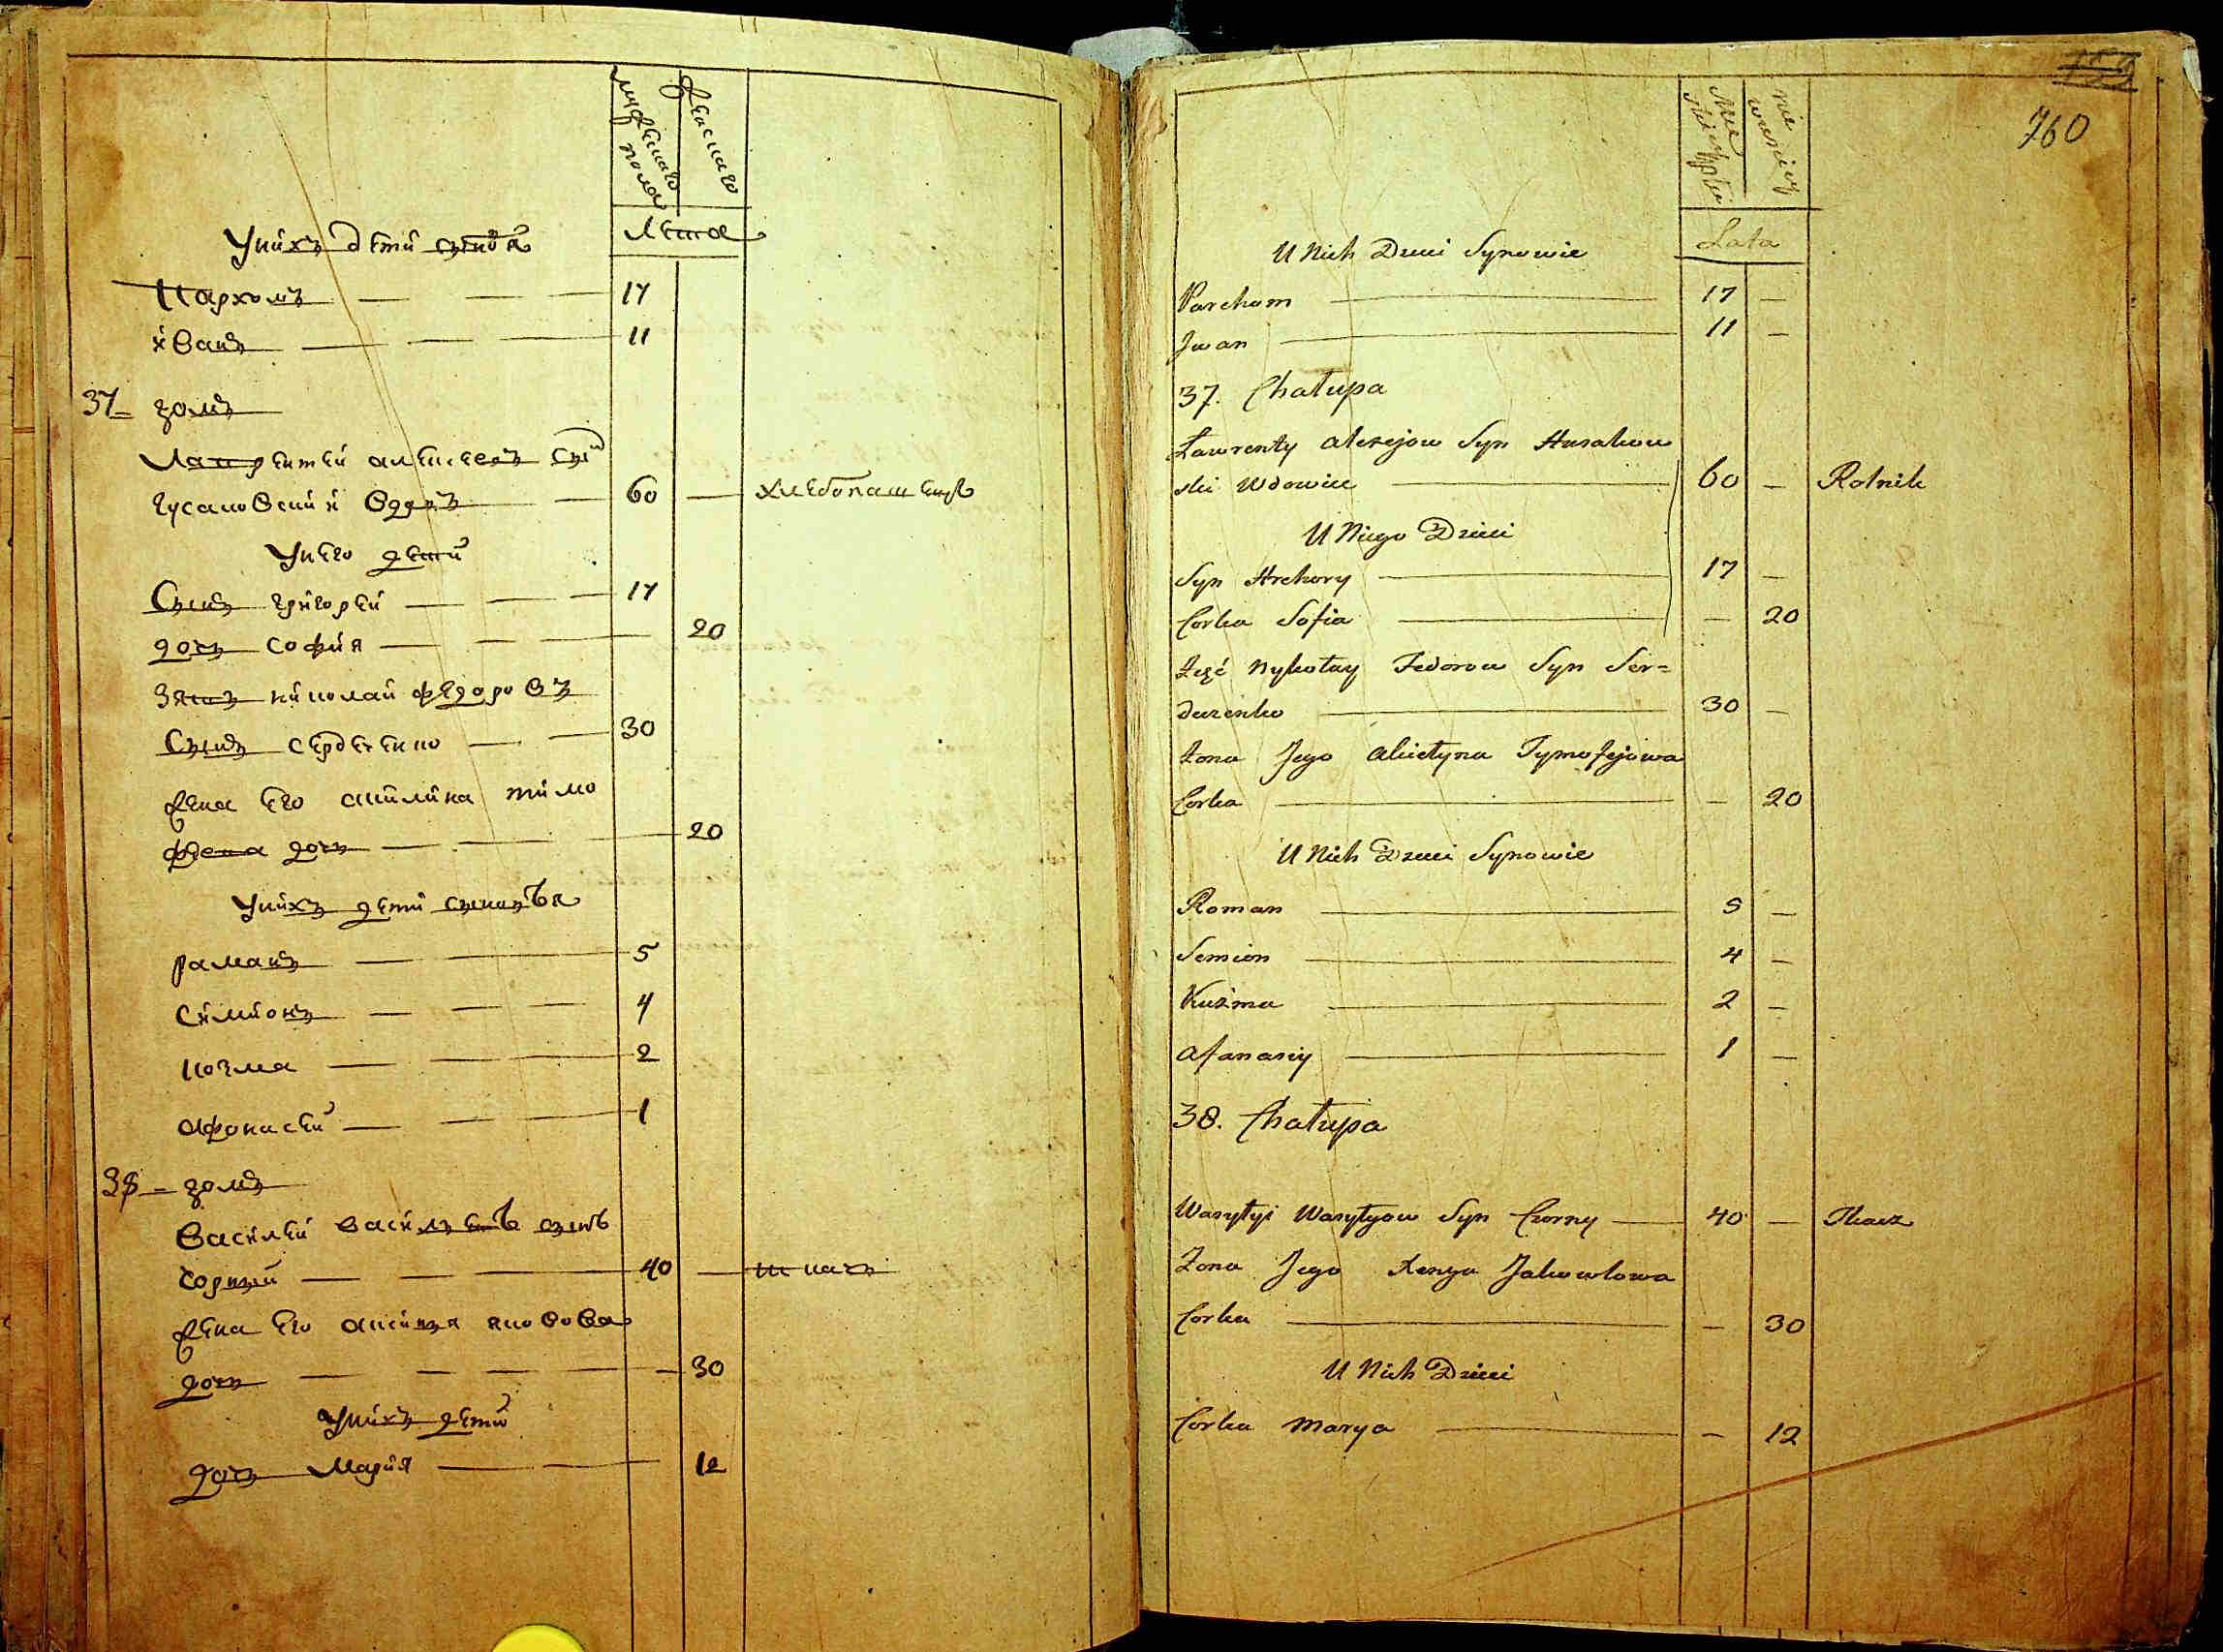 мужеска пола
женска
Лета
У них дети сыновя
Пархомъ 17
иванъ 11
37 домъ
Лаврентей алексеевъ сын
гусаковский вдовъ 60 — хлебопашецъ
У него дети
Сынъ григорей 17
дочъ софия 20
Зять николай федоровъ
Сынъ сердеченко 30
жена его акилина тимо
феева дочъ 20
У нихъ дети сыновъя
раманъ 5
симионъ 4
козма 2
афонасей 1
38 домъ
василей васильевъ сынъ
чорный 40 — ткачъ
жена его аксиния яковова
дочъ 30
У нихъ дети
дочъ Мария 12
159
760
Lata
U Nich Dzieci Synowie
Parchom 17 —
Jwan 11 —
37. Chałupa
Ławrenty Alexejow Syn Husakow
ski Wdowiec 60 — Rolnik
U Niego Dzieci
Syn Hrehory 17 —
Corka Sofia — 20
Zęć Nykołay Fedorow Syn Ser=
deczenko 30 —
Zona Jego Akiełyna Tymofejowa
Corka — 20
U Nich Dzieci Synowie
Roman 5 —
Semion 4 —
Kuźma 2 —
Afanasiy 1 —
38. Chałupa
Wasyłyi Wasyłyow Syn Czorny 40 — Tkacz
Zona Jego Xenya Jakowlowa
Corka — 30
U Nich Dzieci
Corka Marya — 12